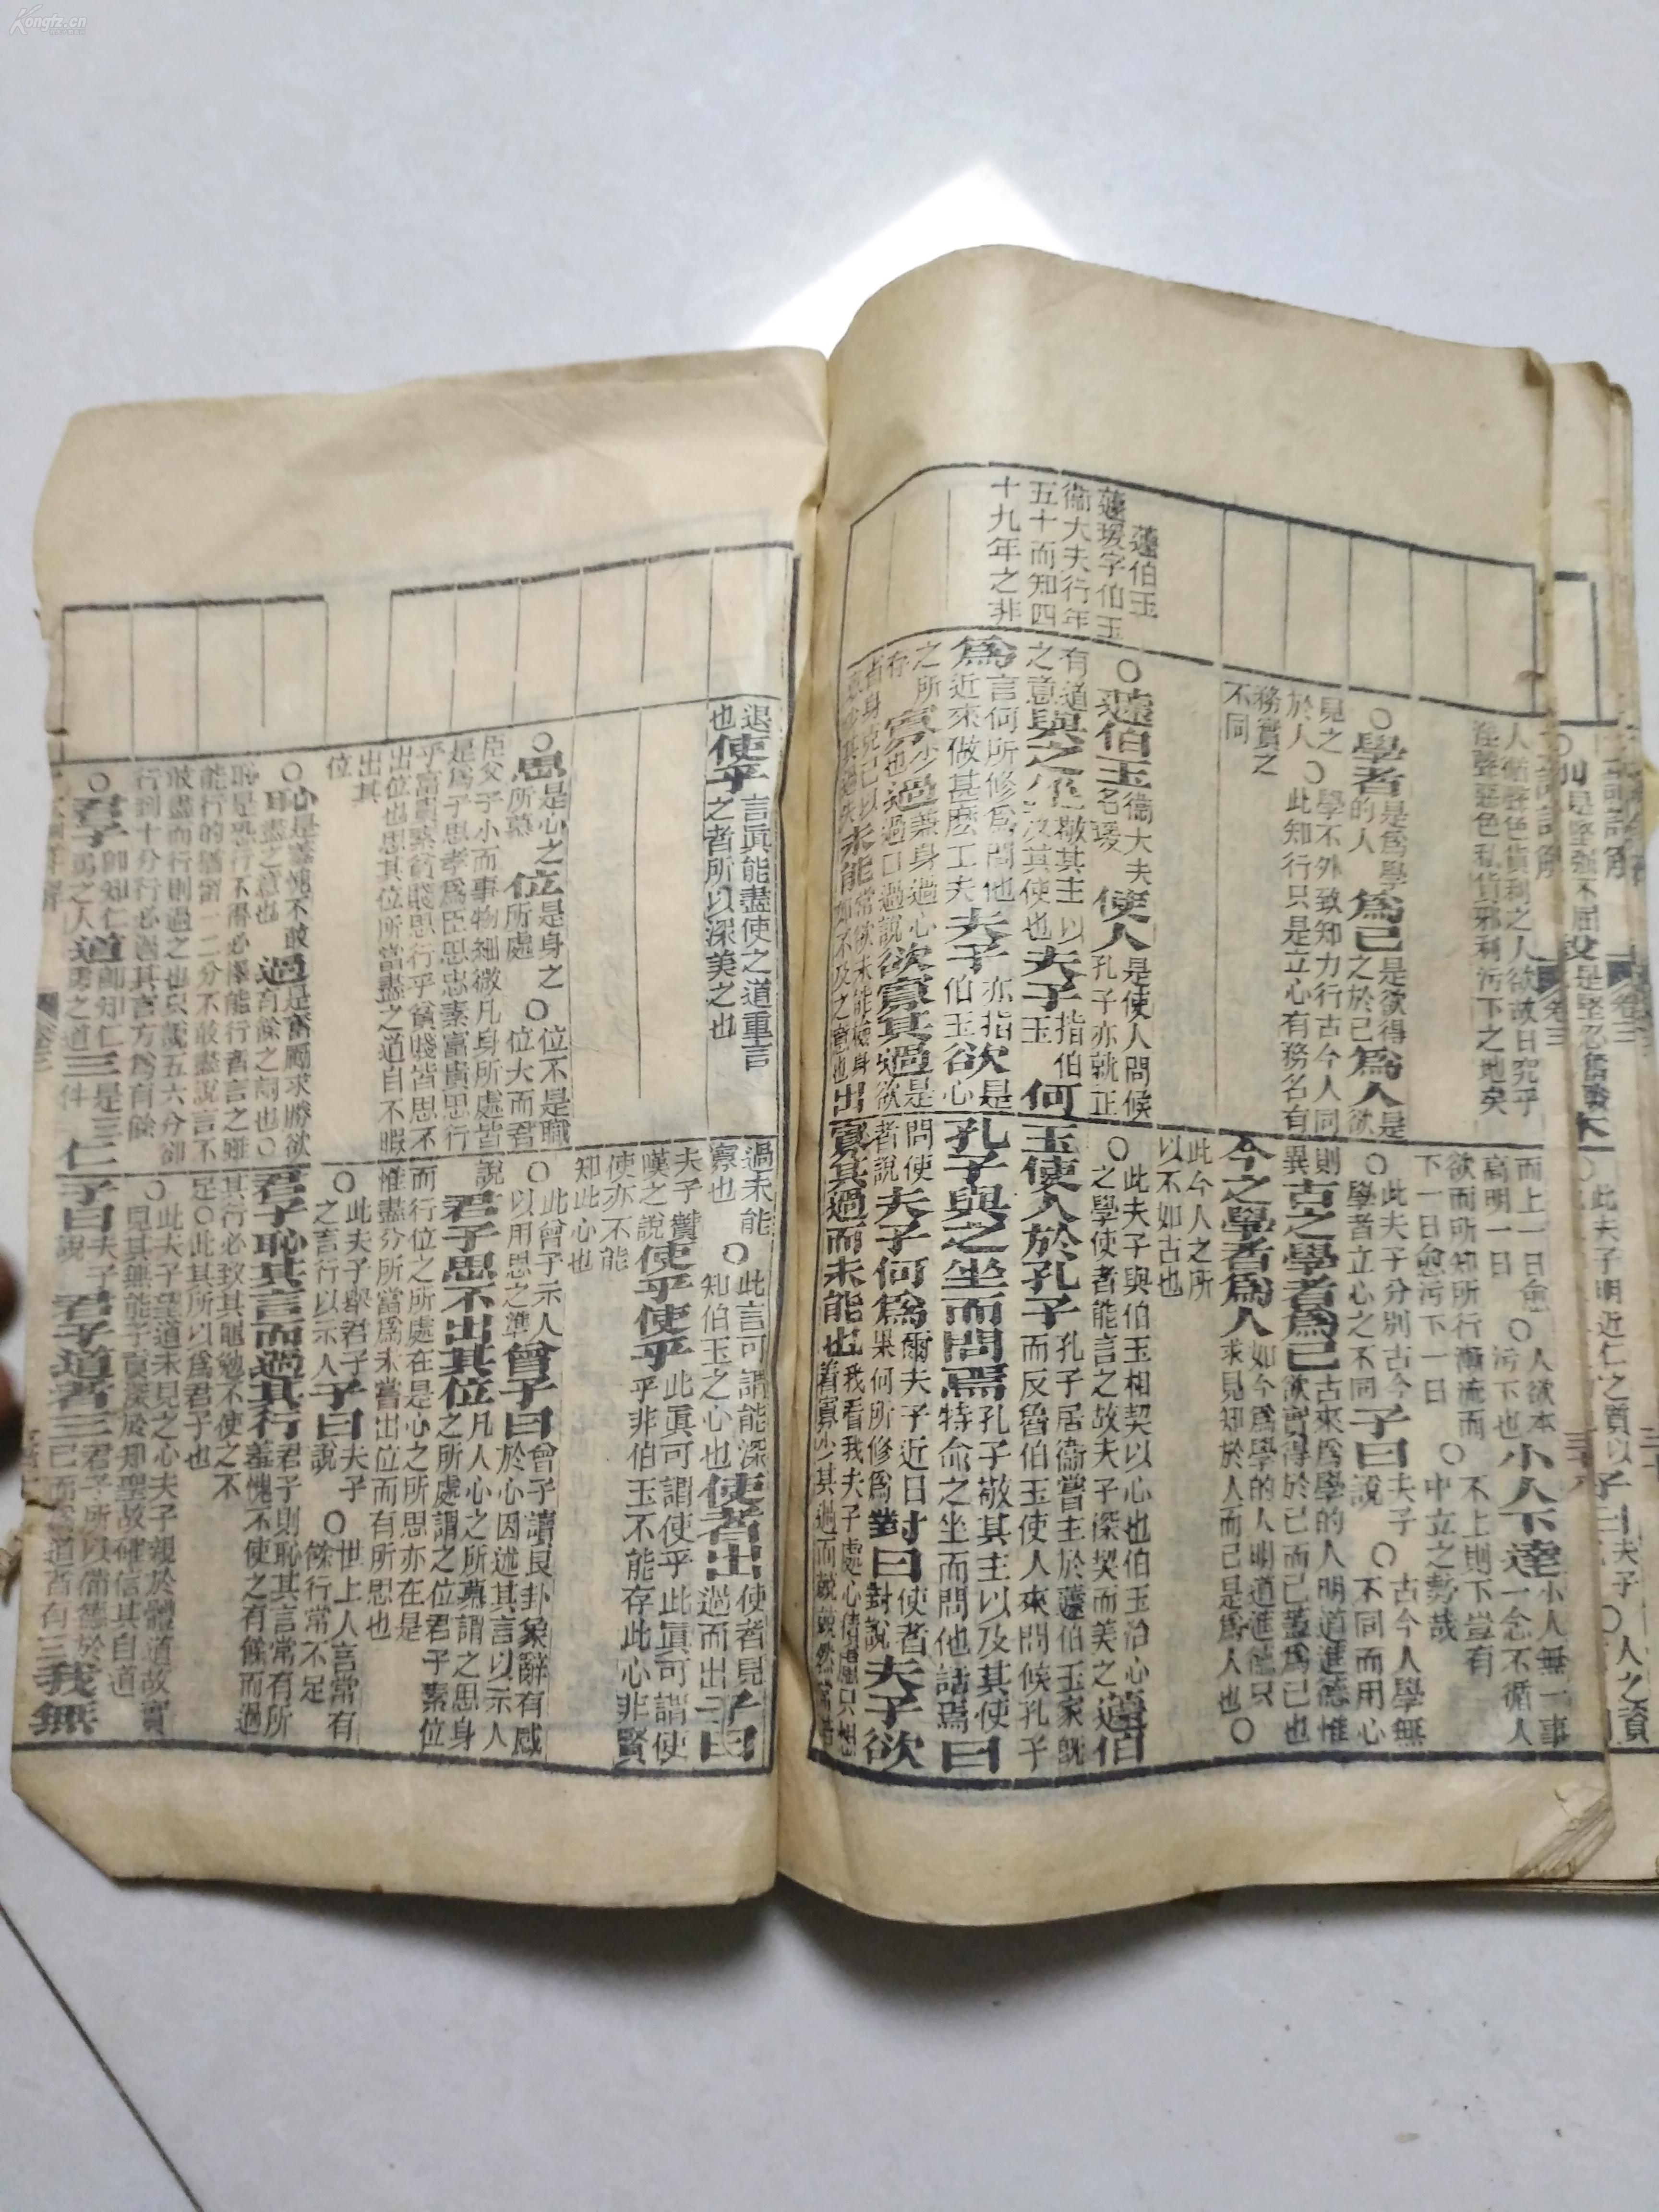 Kongfz.cn
蘧伯玉
蘧瑗字伯玉
衞大夫行年
五十而知四
十九年之非
人循聲色貨利之人欲故日究乎
淫聲惡色私貨邪利污下之地矣
○學者是爲學的人爲己是欲得之於己爲人是欲
見之於人○此知行只是立心有務名務實之不同
○蘧伯玉衞大夫名瑗使人是使人問候孔子亦就正
有道之意與之坐敬其主以及其使也夫子指伯玉何
爲言何所修爲問他近來做甚麽工夫夫子亦指伯玉欲是心
之所存寡少也過兼身過心過口過說欲寡其過是
未能
出
而上一日愈高明一日○人欲本污下也小人下達小人無一事一念不循人
欲而所知所行漸流而下一日愈污下一日○不上則下豈有中立之勢哉
○此夫子分別古今學者立心之不同子曰夫子說○古今人學無不同而用心
則異古之學者爲己古來爲學的人明道進德惟欲實得於己而已蓋爲己也
今之學者爲人如今爲學的人明道進德只求見知於人而已是爲人也○
此今人之所以不如古也
○此夫子與伯玉相契以心也伯玉治心之學使者能言之故夫子深契而美之蘧伯
玉使人於孔子孔子居衞嘗主於蘧伯玉家旣而反魯伯玉使人來問候孔子
孔子與之坐而問焉孔子敬其主以及其使特命之坐而問他話焉曰
問使者說夫子何爲爾夫子近日果何所修爲對曰使者對說夫子欲
寡其過而未能也我看我夫子處心
退也使乎使乎言眞能盡使之道重言之者所以深美之也
○思是心之所慕位是身之所處○位不是職位大而君
臣父子小而事物細微凡身所處皆是爲子思孝爲臣思忠素富貴思行
乎富貴素貧賤思行乎貧賤皆思不出位也思其位所當盡之道自不暇出其
位
○恥是羞愧不敢盡之意也過是奮勵求勝欲有餘之謂也○
恥是恐行不得必擇能行者言之雖能行的猶留一二分不敢盡說言不
敢盡而行則過之也只說五六分卻行到十分行必過其言方爲有餘
○君子卽知仁勇之人道卽知仁勇之道三是三件仁
過未能寡也○此言可謂能深知伯玉之心也使者出使者見過而出子曰
夫子贊嘆之說使乎使乎此眞可謂使乎此眞可謂使乎非伯玉不能存此心非賢
使亦不能知此心也
○此曾子示人以用思之準曾子曰曾子讀艮卦象辭有感於心因述其言以示人
說君子思不出其位凡人心之所慕謂之思身之所處謂之位君子素位
而行位之所處在是心之所思亦在是惟盡分所當爲未嘗出位而有所思也
○此夫子舉君子之言行以示人子曰夫子說○世上人言常有餘行常不足
君子恥其言而過其行君子則恥其言常有所羞愧不使之有餘而過
其行必致其黽勉不使之不足○此其所以爲君子也
○此夫子望道未見之心夫子親於體道故實見其無能子貢深於知聖故確信其自道
子曰夫子說君子道者三君子所以備德於己而爲道者有三我無